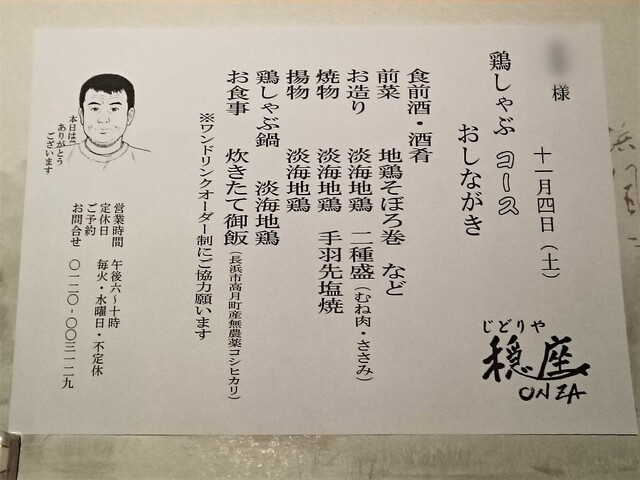 様
十一月四日（土）
鶏しゃぶ コース
おしながき
じどりや
穏座
ONZA
食前酒・酒肴
前菜 地鶏そぼろ巻 など
お造り 淡海地鶏 二種盛（むね肉・ささみ）
焼物 淡海地鶏 手羽先塩焼
揚物 淡海地鶏
鶏しゃぶ鍋 淡海地鶏
お食事 炊きたて御飯（長浜市高月町産無農薬コシヒカリ）
※ワンドリンクオーダー制にご協力願います
営業時間 午後六～十時
定休日 毎火・水曜日・不定休
ご予約
お問合せ 〇一二〇-〇〇三一二九
本日は
ありがとう
ございます